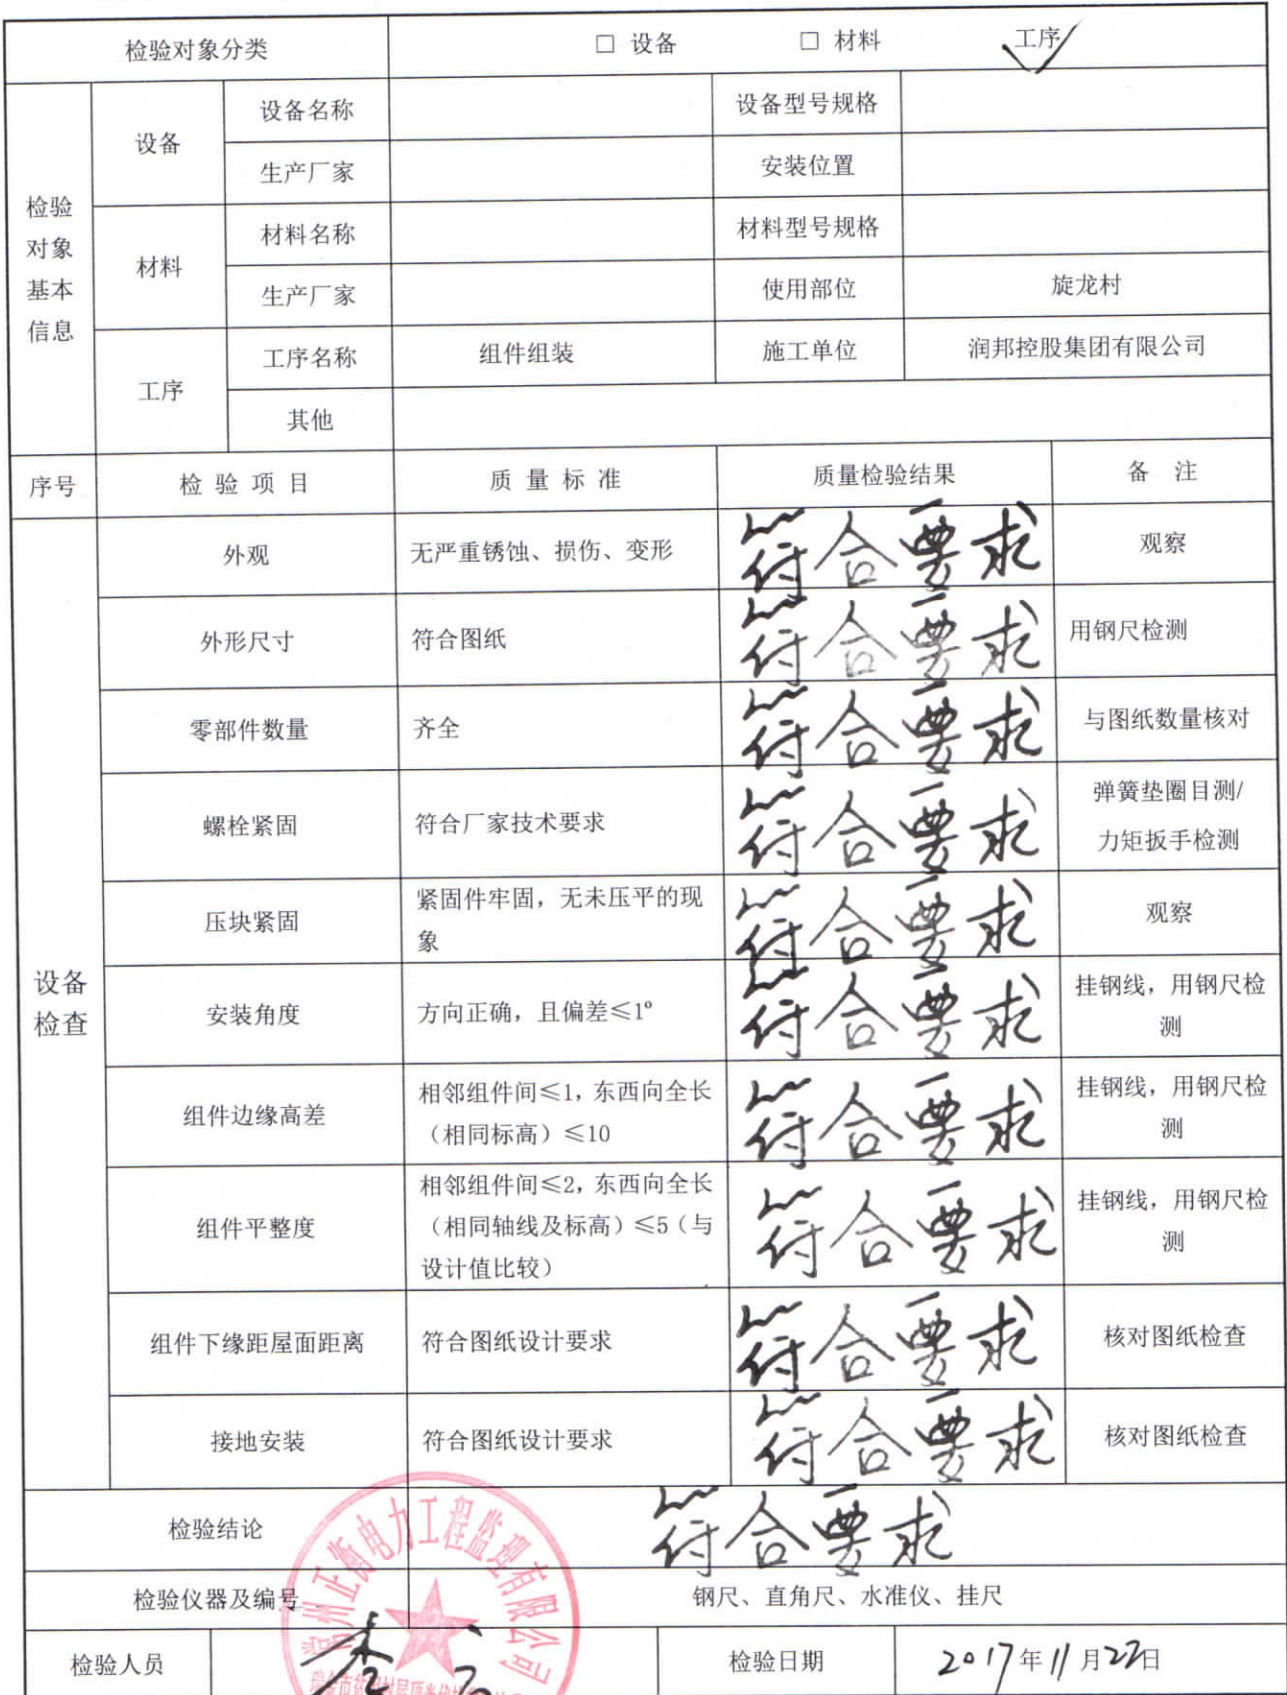 检验对象分类 □ 设备 □ 材料 工序
检验对象基本信息
设备 设备名称 设备型号规格
生产厂家 安装位置
材料 材料名称 材料型号规格
生产厂家 使用部位 旋龙村
工序 工序名称 组件组装 施工单位 润邦控股集团有限公司
其他
序号 检验项目 质量标准 质量检验结果 备注
设备检查
外观 无严重锈蚀、损伤、变形 符合要求 观察
外形尺寸 符合图纸 符合要求 用钢尺检测
零部件数量 齐全 符合要求 与图纸数量核对
螺栓紧固 符合厂家技术要求 符合要求 弹簧垫圈目测/
力矩扳手检测
压块紧固 紧固件牢固，无未压平的现
象 符合要求 观察
安装角度 方向正确，且偏差≤1° 符合要求 挂钢线，用钢尺检
测
组件边缘高差 相邻组件间≤1，东西向全长
（相同标高）≤10 符合要求 挂钢线，用钢尺检
测
组件平整度 相邻组件间≤2，东西向全长
（相同轴线及标高）≤5（与
设计值比较） 符合要求 挂钢线，用钢尺检
测
组件下缘距屋面距离 符合图纸设计要求 符合要求 核对图纸检查
接地安装 符合图纸设计要求 符合要求 核对图纸检查
检验结论 符合要求
常州正衡电力工程监理有限公司
检验仪器及编号 钢尺、直角尺、水准仪、挂尺
检验人员 检验日期 2017年11月22日